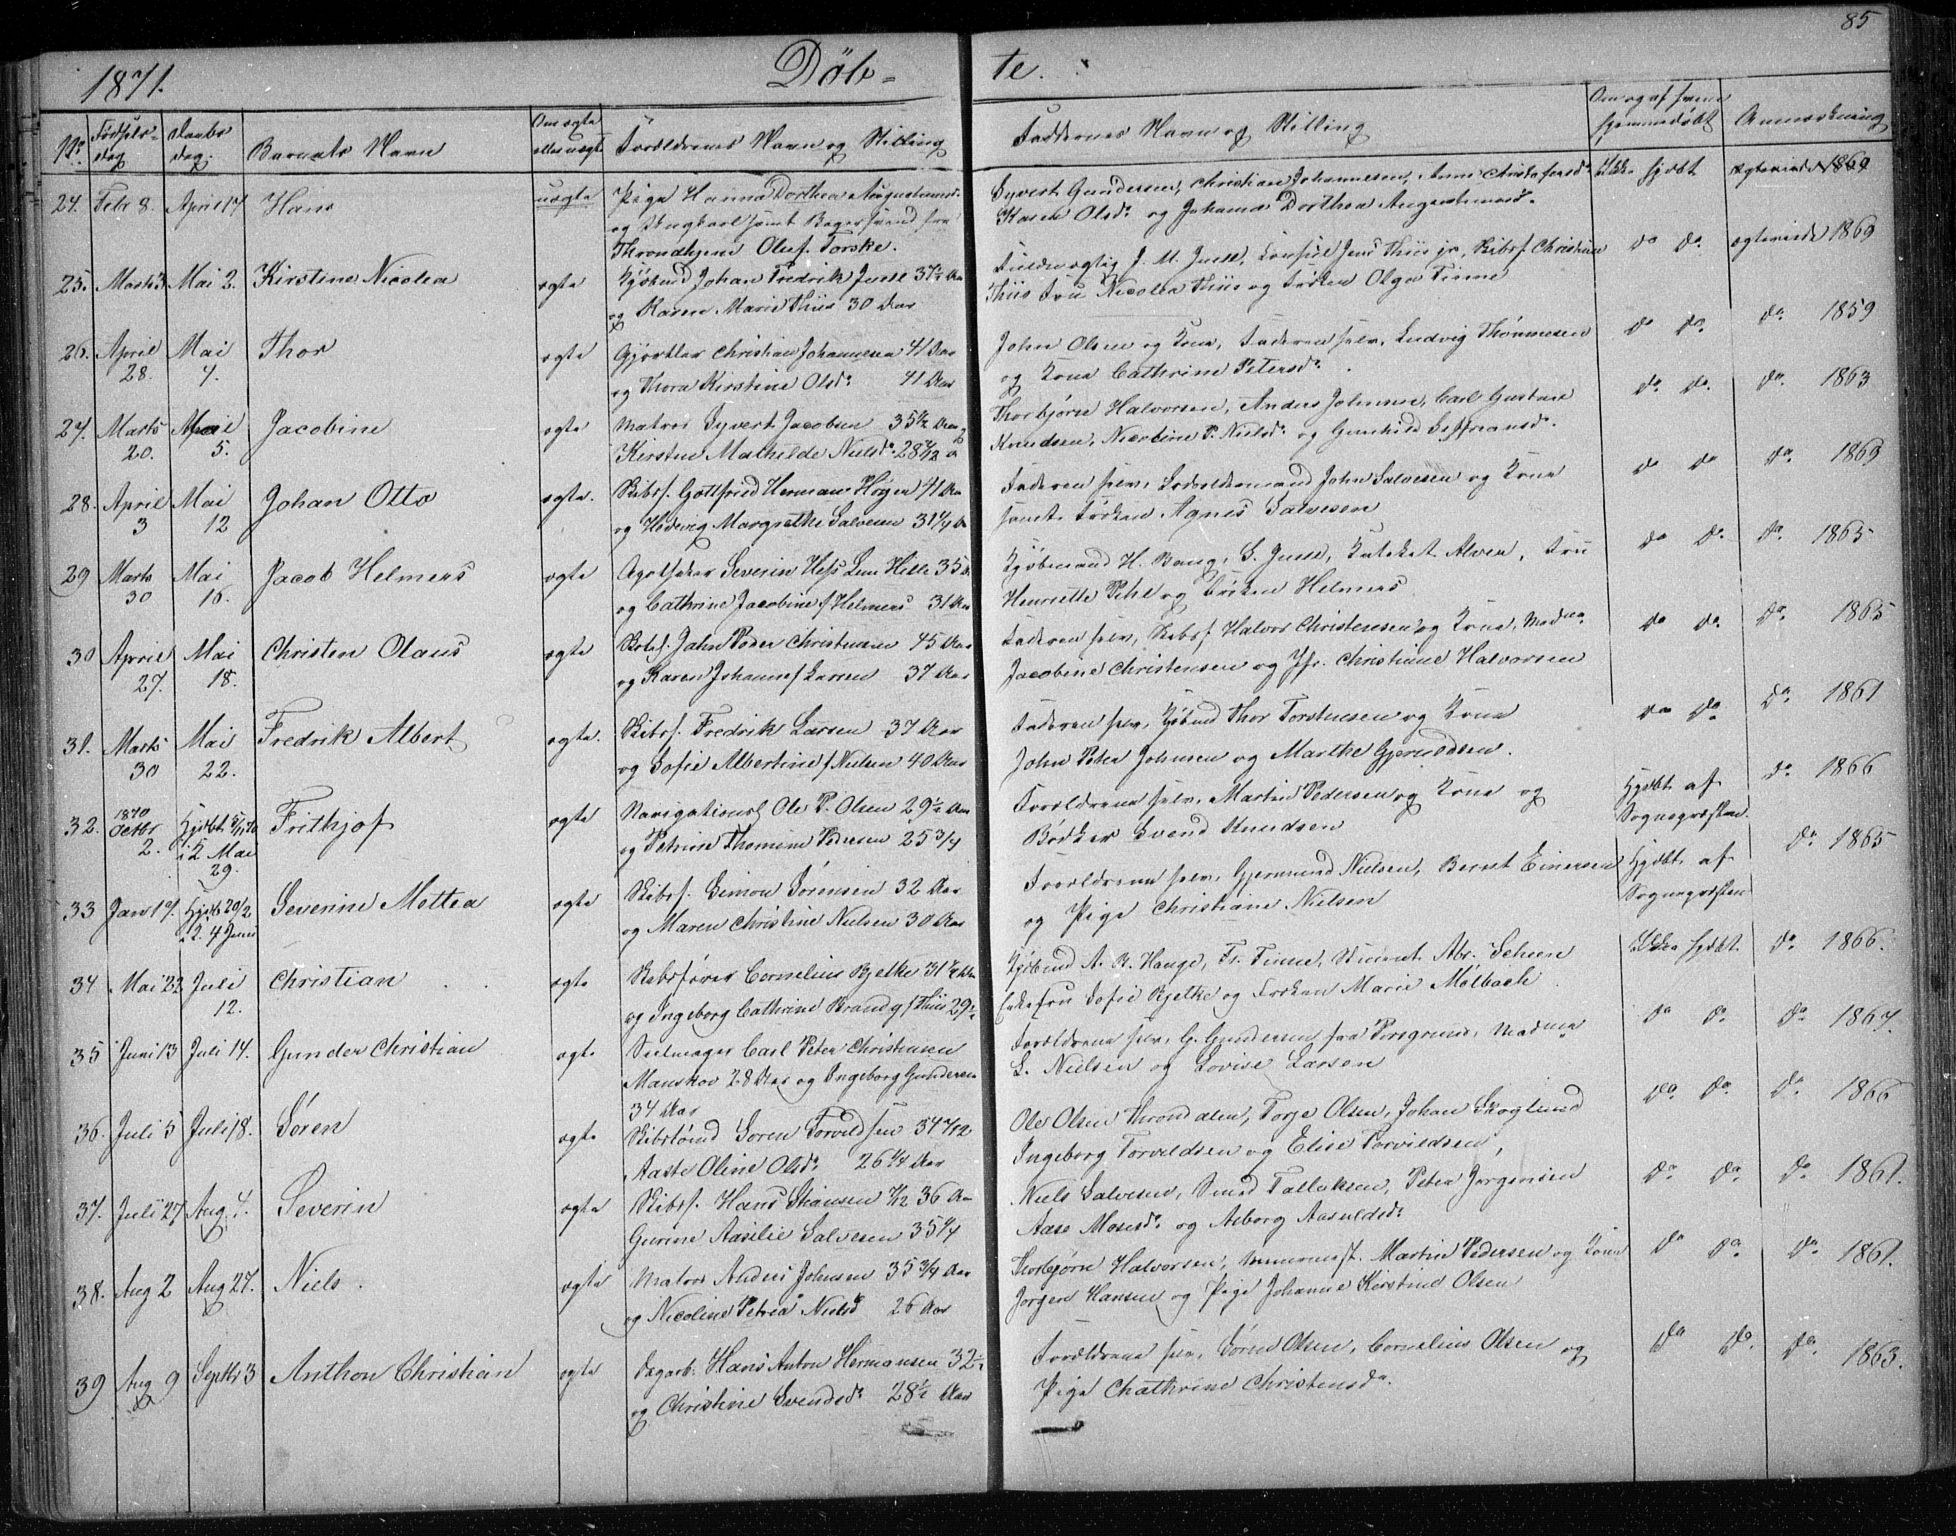 85
1871. Döb- te.
No Fødsels-dag Daabs dag. Barnets Navn Om ægte eller uægte Forældrenes Navn og Stilling Faddernes Navn og Stilling Om og af hvem hjemmedøbt Anmærkning
24. Febr 8. April 17 Hans uægte Pige Hanna Dorthea Augustinusd.
og Ungkarl samt Bagersvend fra
Throndhjem Oluf Torske.
Syvert Gundersen, Christian Johannesen, Anne Christofersd.
Karen Olsd. og Johanna Dorthea Augustinusd.
Ikke hjdbt 1869
25. Marts 3 Mai 2. Kirstine Nicolea ægte Kjøbmd Johan Fredrik Jusse 37½ Aar
og Karen Marie Thiis 30 Aar
J. M. Jusse, Consul Jens Thiis jr, Skibsf. Christian
Thiis Fru Nicolea Thiis og Frøken Olga Finne
do do. 1869
26. April 28. Mai 7. Thor ægte Gjørtler Christian Johannesen 41 Aar
og Thora Kirstine Olsd. 41 Aar
John Olsen og Kone, Faderen selv, Ludvig Thommesen
og Kone Cathrine Petersd.
do do. do. 1859
27. Marts 20. Mai 5. Jacobine ægte Matros Syvert Jacobsen 35½ Aar
Kirstine Mathilde Nielsd. 28
Thorbjørn Halvorsen, Anders Johnsen, Carl Gustav
Knudsen, Nicoline P. Nielsd. og Gunhild
do. do. do. 1863
28. April 3 Mai 12 Johan Otto ægte. Skibsf. Gottfried Herman Høyer 41 Aar
og Hedevig Margrethe Salvesen 31¼ A
Faderen selv, John Salvesen og Kone
samt Frøken Agnes Salvesen
do do do. 1869
29 Marts 30 Mai 16. Jacob Helmers ægte Apotheker Severin Hess Lem Hille 35
og Cathrine Jacobine f Helmers 31 Aar
Kjøbmand H. Bang, S. Jusse, Alver, Fru
Henriette Pihl og Frøken Helmers
do do. do. 1865
30 April 27. Mai 18. Christen Olaus ægte Skibsf. John Peder Christensen 45 Aar
og Karen Johanne f Larsen 37 Aar
Faderen selv, Skibsf. Halvor Christensen og Kone, Madme
Jacobine Christensen og Jfr. Christiane Halvorsen
do do. do 1865
31. Marts 30 Mai 22. Fredrik Albert ægte. Skibsf. Fredrik Larsen 37 Aar
og Sofie Albertine f Nielsen 40 Aar
Faderen selv, Kjøbmd Thor Torstensen og Kone
John Peter Johnsen og Marthe Gjeruldsen.
do do do. 1861
32. 1870 Octbr 2. Hjdbt i K. Mai 29. Frithjof ægte Navigationsl Ole P. Olsen 29½ Aar
og Petrine Thomine Pedersen 25 3/4
Forældrene selv, Martin Pedersen og Kone og
Bødker Svend Knudsen
Hjdbt af
Sognepræsten.
do. 1866
33 Janr 17. Hjdbt 20/2 i K. 4 Juni Severine Mettea ægte Skibsf. Simon Sørensen 32 Aar
og Maren Christine Nielsen 30 Aar
Forældrene selv, Gjermund Nielsen, Bernt Einersen
og Pige Christiane Nielsen
Hjdbt af
Sognepræsten
do 1865
34 Mai 22 Juli 12. Christian ægte Skibsfører Cornelius Bjelke 31¼ Aar
og Ingeborg Cathrine Brandg f Thiis 29½
Kjøbmd A. B. Hauge, Fr. Finne, Student Abr. Scheen
Enkefru Sofie Bjelke og Frøken Marie Mølbach
Ikke hjdbt do 1866.
35 Juni 13 Juli 14. Gunder Christian ægte Seilmager Carl Peter Christiansen
Manskov 28 Aar og Ingeborg Gundersen
34 Aar
Forældrene selv, G. Gundersen fra Porsgrund, Madme
L. Nielsen og Lovise Larsen
do do. do 1867.
36. Juli 5 Juli 18. Søren ægte Skibstømd Soren Torvildsen 34 7/12
Aaste Oline Olsd. 26 1/4 Aar
Ole Olsen Throndalen, Torje Olsen, Johan Skoglund
Ingeborg Torvildsen og Elise Torvildsen,
do do. do 1866
37. Juli 27 Aug. 4. Severin ægte Skibsf. Hans Stiansen 36 Aar
Gurine Aasilie Salvesen 35 1/4
Niels Salvesen, Svend Tallaksen, Peter Jørgensen
Aase Mosesd. og Asborg Aasuldsd.
do do. do 1861.
38. Aug 2 Aug 27. Niels. ægte Matros Anders Johnsen 35 3/4 Aar
og Nicoline Petrea Nielsd 26 Aar
Thorbjørn Halvorsen, Martin Pedersen og Kone
Jørgen Hansen og Pige Johanne Kirstine Olsen
do do. do. 1861.
39 Aug 9 Septbr 3 Anthon Christian ægte Dagarb. Hans Anton Hermansen 32½
og Christine Svendsd. 28½ Aar
Forældrene selv, Sørn Olsen, Cornelius Olsen og
Pige Chathrine Christensd.
do do. do. 1863.